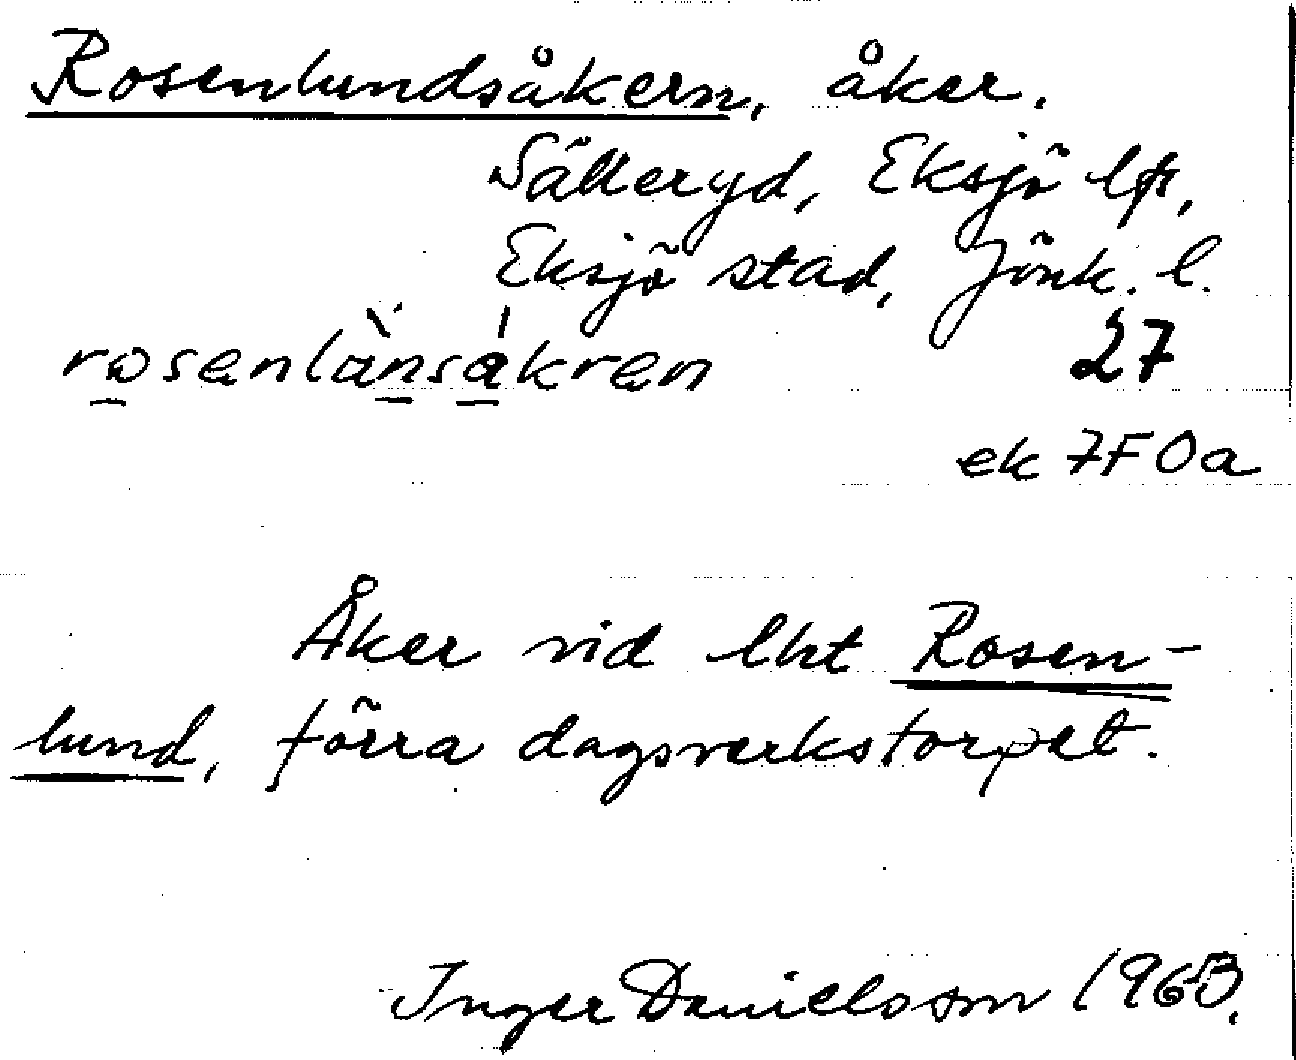 Rosenlundsåkern, åker.
Sälleryd, Eksjö lfs,
Eksjö stad, Jönk. l.
rosenlänsåkren 27
ek 7F0a
Åker vid lht Rosen-
lund, förra dagsverkstorpet.
Inger Danielsson 1963.